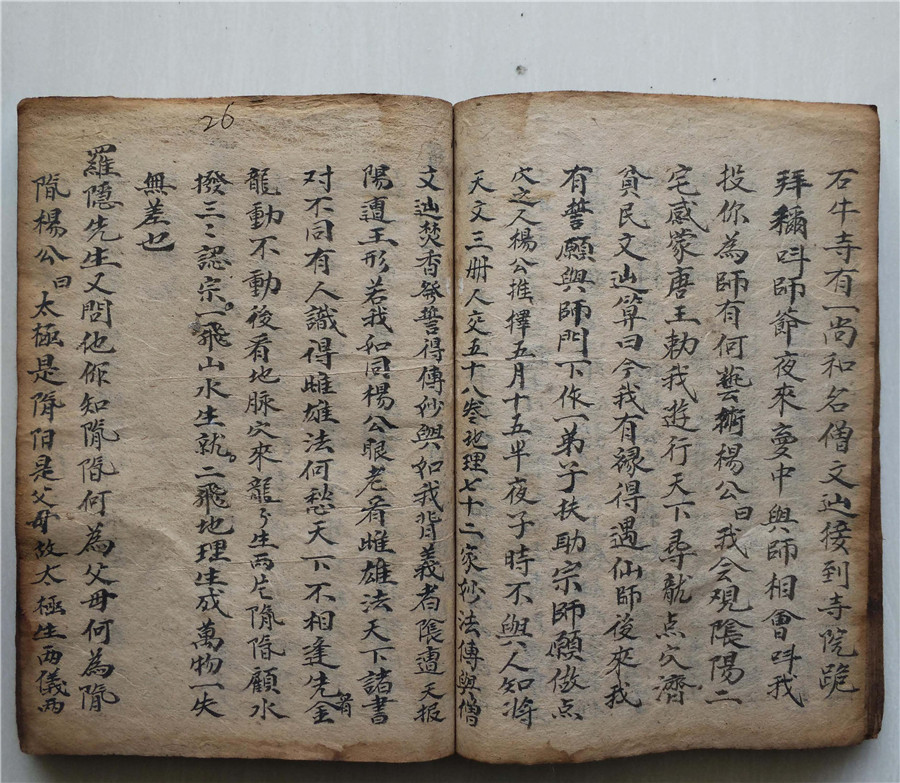 石牛寺有一尚和名僧文辿接到寺院跪
拜稱呌師爺夜來夢中與師相會呌我
投你為師有何藝術楊公曰我会观陰陽二
宅感蒙唐王勅我遊行天下尋龍点穴濟
貧民文辿算曰今我有緣得遇仙師後來我
有誓願與師門下作一弟子扶助宗師願做点
穴之人楊公推擇五月十五半夜子時不與人知將
天文三册人交五十八卷地理七十二家妙法傳與僧
文辿焚香發誓得傳妙與如我背義者陰遭天报
陽遭王形若我如同楊公眼老看雌雄法天下諸書
对不同有人識得雌雄法何愁天下不相逢先金
龍動不動後看地脉穴來龍々生两片隂陽顧水
撥三三認宗一飛山水生就二飛地理生成萬物一失
無差也
26
羅隱先生又問他你知隂陽何為父母何為隂
陽楊公曰太極是隂阳是父母故太極生两儀两